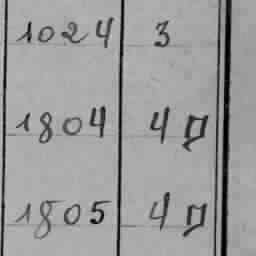 1024 3
1804 4 д
1805 4 д